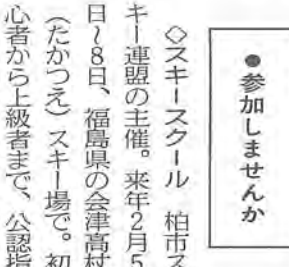 ●参加しませんか
◇スキースクール　柏市ス
キー連盟の主催。来年2月5
日~8日、福島県の会津高村
(たかつえ)スキー場で。初
心者から上級者まで、公認指